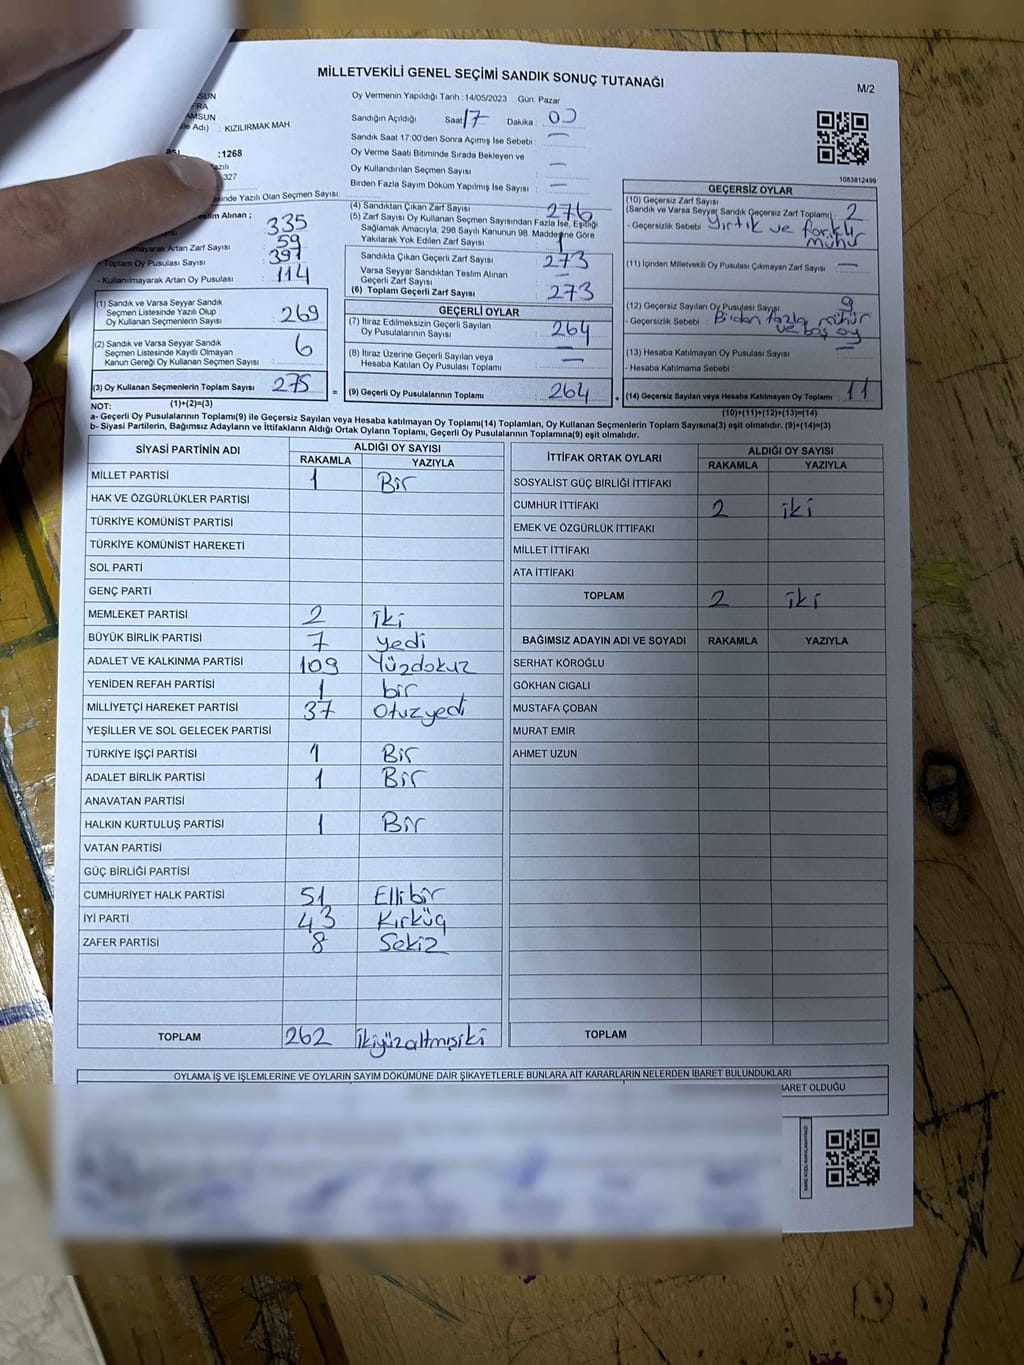 MİLLETVEKİLİ GENEL SEÇİMİ SANDIK SONUÇ TUTANAĞI
M/2
SUN
FRA
AMSUN
lle Adı) : KIZILIRMAK MAH.
:1268
327
inde Yazılı Olan Seçmen Sayısı:
eslim Alınan ;
335
mayarak Artan Zarf Sayısı 59
- Toplam Oy Pusulası Sayısı 391
- Kullanılmayarak Artan Oy Pusulası 114
(1) Sandık ve Varsa Seyyar Sandık
Seçmen Listesinde Yazılı Olup
Oy Kullanan Seçmenlerin Sayısı 269
(2) Sandık ve Varsa Seyyar Sandık
Seçmen Listesinde Kayıtlı Olmayan
Kanun Gereği Oy Kullanan Seçmen Sayısı 6
(3) Oy Kullanan Seçmenlerin Toplam Sayısı 275 =
(1)+(2)=(3)
Oy Vermenin Yapıldığı Tarih :14/05/2023 Gün: Pazar
Sandığın Açıldığı Saat 17 Dakika : 00
Sandık Saat 17:00'den Sonra Açımış İse Sebebi : —
Oy Verme Saati Bitiminde Sırada Bekleyen ve
Oy Kullandırılan Seçmen Sayısı : —
Birden Fazla Sayım Döküm Yapılmış İse Sayısı : —
(4) Sandıktan Çıkan Zarf Sayısı 276
(5) Zarf Sayısı Oy Kullanan Seçmen Sayısından Fazla İse, Eşitliği
Sağlamak Amacıyla, 298 Sayılı Kanunun 98. Maddesine Göre
Yakılarak Yok Edilen Zarf Sayısı 1
Sandıkta Çıkan Geçerli Zarf Sayısı 273
Varsa Seyyar Sandıktan Teslim Alınan
Geçerli Zarf Sayısı —
(6) Toplam Geçerli Zarf Sayısı 273
GEÇERLİ OYLAR
(7) İtiraz Edilmeksizin Geçerli Sayılan
Oy Pusulalarının Sayısı 264
(8) İtiraz Üzerine Geçerli Sayılan veya
Hesaba Katılan Oy Pusulası Toplamı —
(9) Geçerli Oy Pusulalarının Toplamı 264 +
1083812499
GEÇERSİZ OYLAR
(10) Geçersiz Zarf Sayısı
(Sandık ve Varsa Seyyar Sandık Geçersiz Zarf Toplamı) : 2
- Geçersizlik Sebebi : Yırtık ve farklı
mühür
(11) İçinden Milletvekili Oy Pusulası Çıkmayan Zarf Sayısı : —
(12) Geçersiz Sayılan Oy Pusulası Sayısı 9
- Geçersizlik Sebebi : Birden fazla mühür
ve boş oy
(13) Hesaba Katılmayan Oy Pusulası Sayısı : —
- Hesaba Katılmama Sebebi
(14) Geçersiz Sayılan veya Hesaba Katılmayan Oy Toplamı 11
(10)+(11)+(12)+(13)=(14)
NOT:
a- Geçerli Oy Pusulalarının Toplamı(9) ile Geçersiz Sayılan veya Hesaba katılmayan Oy Toplamı(14) Toplamları, Oy Kullanan Seçmenlerin Toplam Sayısına(3) eşit olmalıdır. (9)+(14)=(3)
b- Siyasi Partilerin, Bağımsız Adayların ve İttifakların Aldığı Ortak Oyların Toplamı, Geçerli Oy Pusulalarının Toplamına(9) eşit olmalıdır.
SİYASİ PARTİNİN ADI ALDIĞI OY SAYISI
RAKAMLA YAZIYLA
MİLLET PARTİSİ 1 Bir
HAK VE ÖZGÜRLÜKLER PARTİSİ
TÜRKİYE KOMÜNİST PARTİSİ
TÜRKİYE KOMÜNİST HAREKETİ
SOL PARTİ
GENÇ PARTİ
MEMLEKET PARTİSİ 2 iki
BÜYÜK BİRLİK PARTİSİ 7 yedi
ADALET VE KALKINMA PARTİSİ 109 Yüzdokuz
YENİDEN REFAH PARTİSİ 1 bir
MİLLİYETÇİ HAREKET PARTİSİ 37 Otuzyedi
YEŞİLLER VE SOL GELECEK PARTİSİ
TÜRKİYE İŞÇİ PARTİSİ 1 Bir
ADALET BİRLİK PARTİSİ 1 Bir
ANAVATAN PARTİSİ
HALKIN KURTULUŞ PARTİSİ 1 Bir
VATAN PARTİSİ
GÜÇ BİRLİĞİ PARTİSİ
CUMHURİYET HALK PARTİSİ 51 Ellibir
İYİ PARTİ 43 Kırküç
ZAFER PARTİSİ 8 Sekiz
TOPLAM 262 ikiyüzaltmışiki
İTTİFAK ORTAK OYLARI ALDIĞI OY SAYISI
RAKAMLA YAZIYLA
SOSYALİST GÜÇ BİRLİĞİ İTTİFAKI
CUMHUR İTTİFAKI 2 iki
EMEK VE ÖZGÜRLÜK İTTİFAKI
MİLLET İTTİFAKI
ATA İTTİFAKI
TOPLAM 2 iki
BAĞIMSIZ ADAYIN ADI VE SOYADI RAKAMLA YAZIYLA
SERHAT KÖROĞLU
GÖKHAN CIGALI
MUSTAFA ÇOBAN
MURAT EMİR
AHMET UZUN
TOPLAM
OYLAMA İŞ VE İŞLEMLERİNE VE OYLARIN SAYIM DÖKÜMÜNE DAİR ŞİKAYETLERLE BUNLARA AİT KARARLARIN NELERDEN İBARET BULUNDUKLARI
BARET OLDUĞU